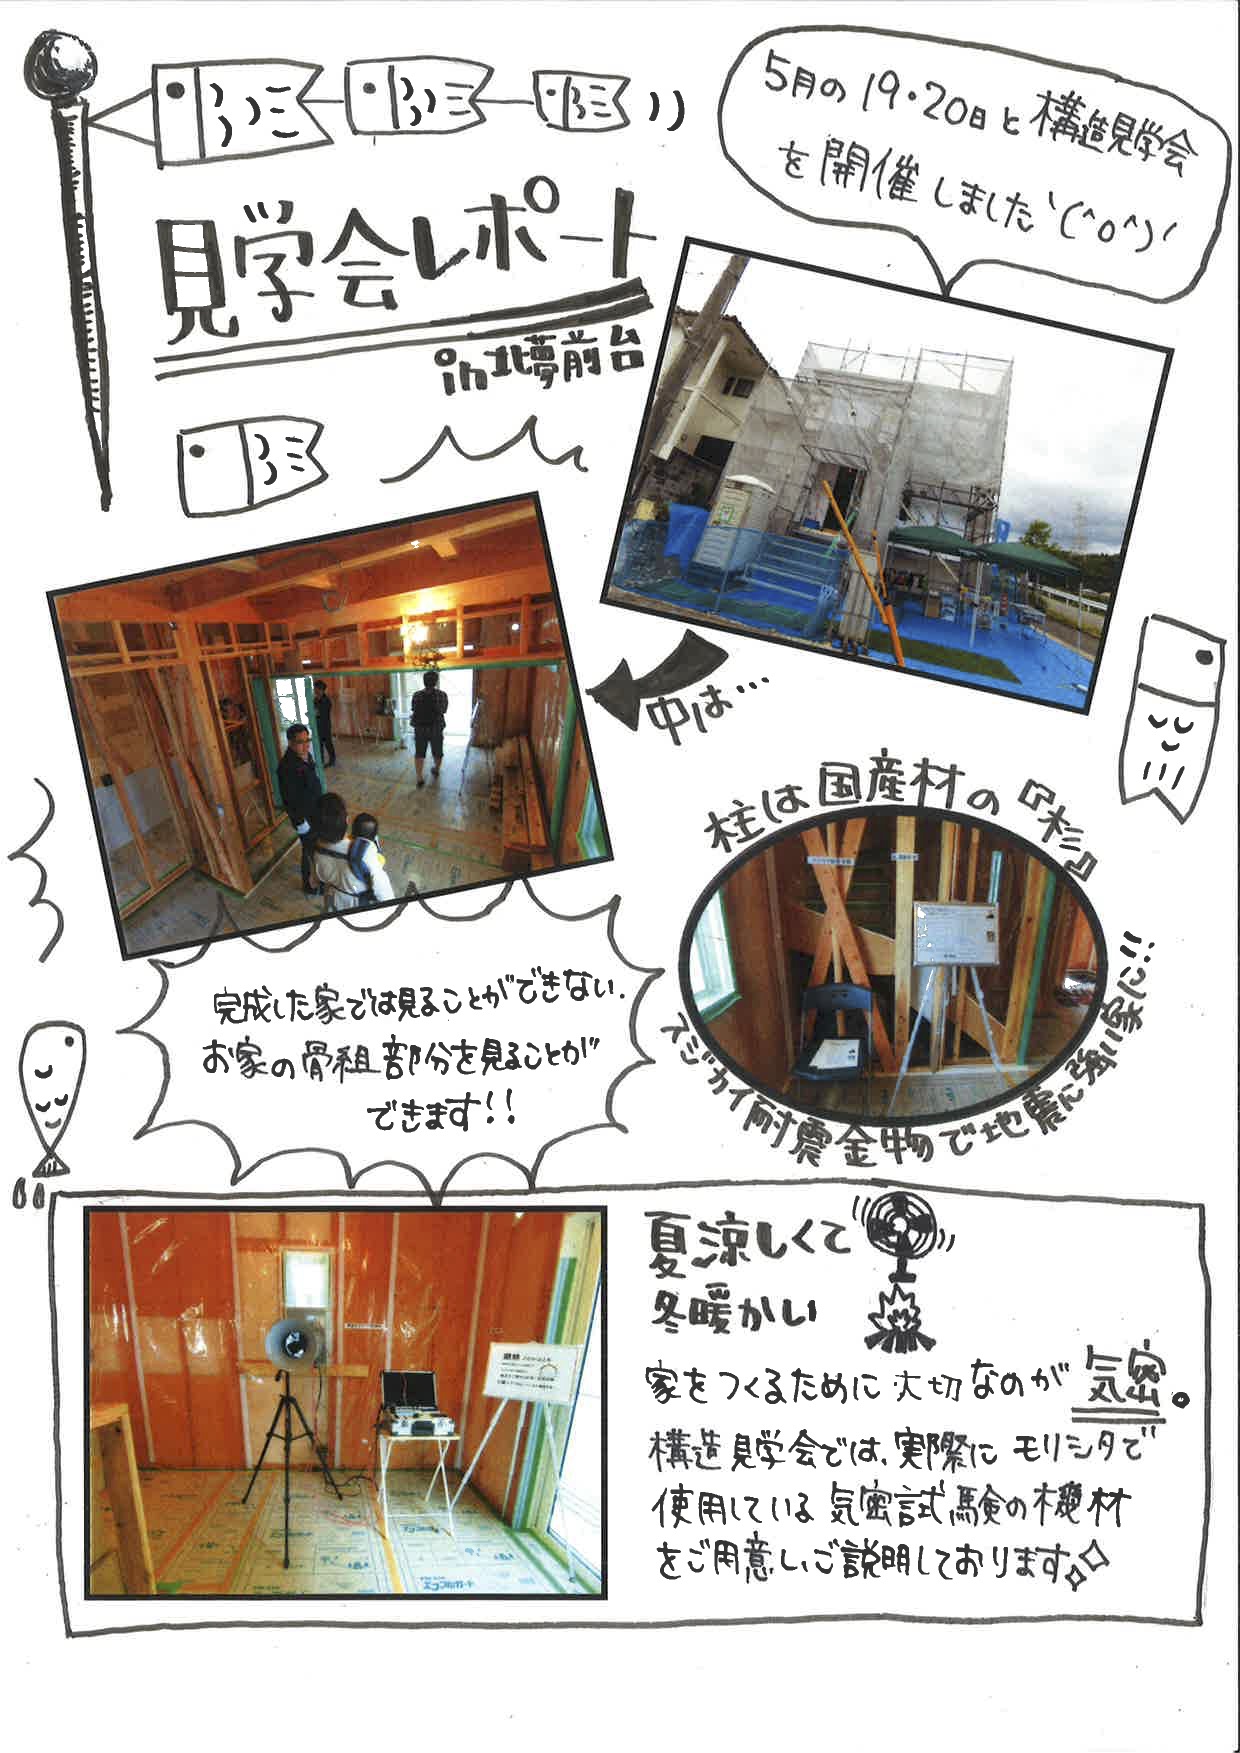 5月の19・20日と構造見学会
を開催しました‵(^o^)′
見学会レポート
in北夢前台
中は…
柱は国産材の『杉』
スジカイ耐震金物で地震に強い家に!!
完成した家では見ることができない、
お家の骨組部分を見ることが
できます!!
夏涼しくて
冬暖かい
家をつくるために大切なのが気密。
構造見学会では、実際にモリシタで
使用している気密試験の機材
をご用意し、ご説明しております